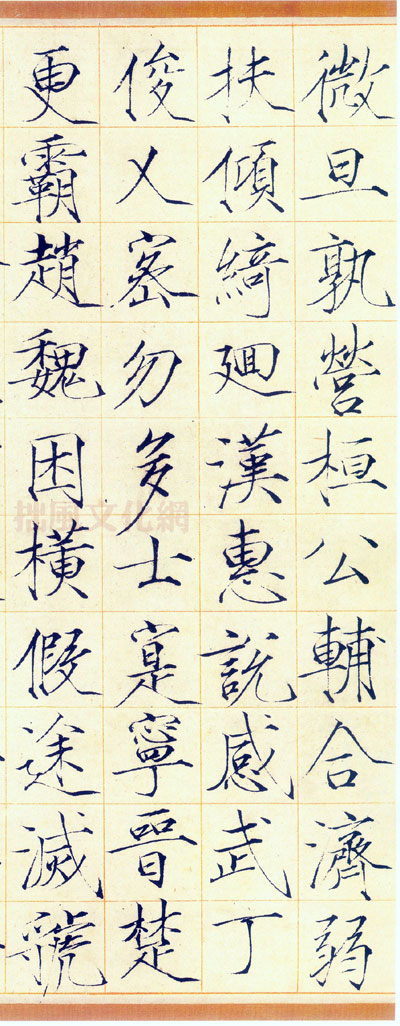 微旦孰營桓公輔合濟弱
扶傾綺廻漢惠說感武丁
俊乂密勿多士寔寧晉楚
更霸趙魏困橫假途滅虢
拙風文化網